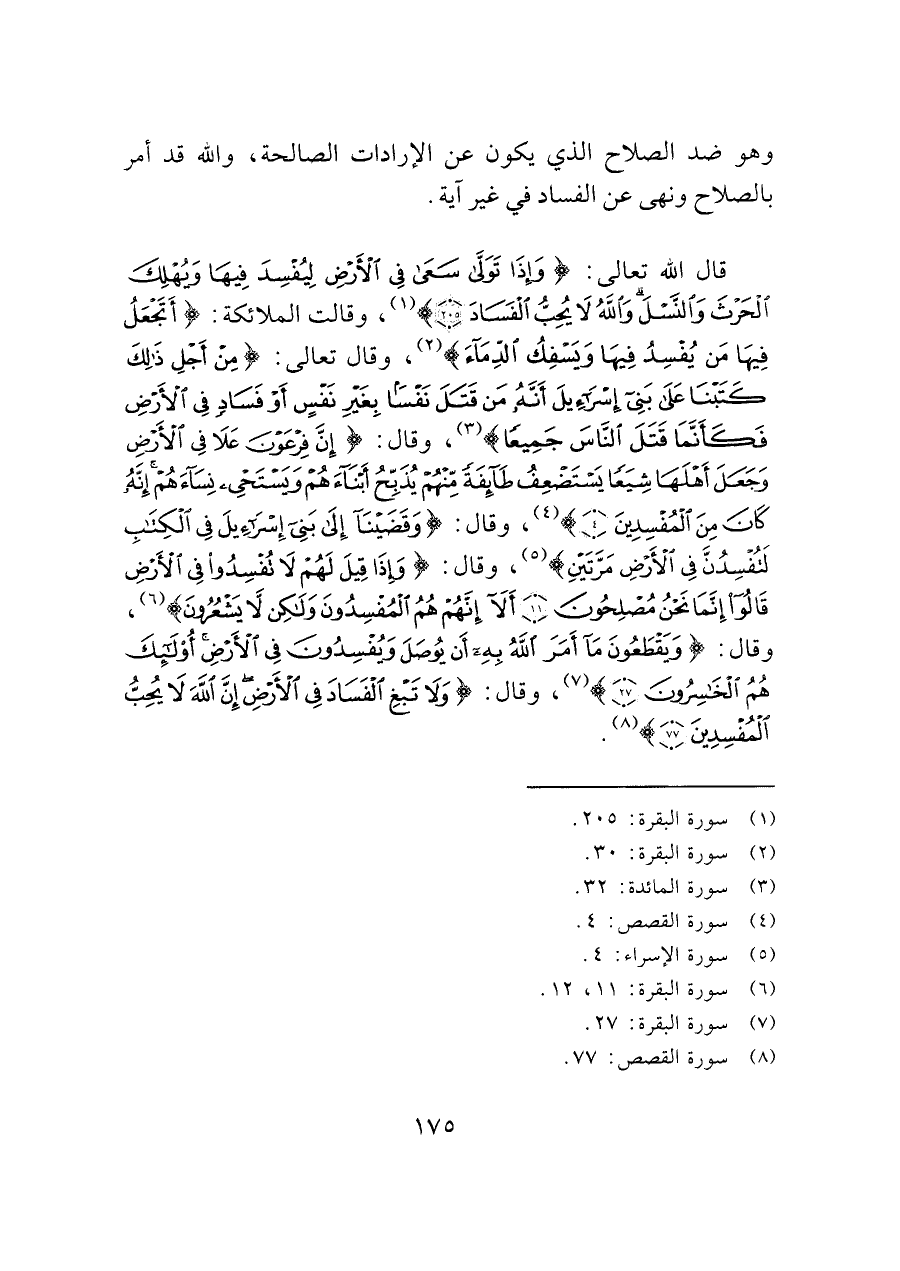 وهو ضد الصلاح الذي يكون عن الإرادات الصالحة، والله قد أمر
بالصلاح ونهى عن الفساد في غير آية.
قال الله تعالى: ﴿ وَإِذَا تَوَلَّىٰ سَعَىٰ فِي ٱلْأَرْضِ لِيُفْسِدَ فِيهَا وَيُهْلِكَ
ٱلْحَرْثَ وَٱلنَّسْلَ ۗ وَٱللَّهُ لَا يُحِبُّ ٱلْفَسَادَ ٢٠٥ ﴾(١)، وقالت الملائكة: ﴿ أَتَجْعَلُ
فِيهَا مَن يُفْسِدُ فِيهَا وَيَسْفِكُ ٱلدِّمَآءَ ﴾(٢)، وقال تعالى: ﴿ مِنْ أَجْلِ ذَٰلِكَ
كَتَبْنَا عَلَىٰ بَنِيٓ إِسْرَٰٓءِيلَ أَنَّهُۥ مَن قَتَلَ نَفْسًۢا بِغَيْرِ نَفْسٍ أَوْ فَسَادٍ فِي ٱلْأَرْضِ
فَكَأَنَّمَا قَتَلَ ٱلنَّاسَ جَمِيعًا ﴾(٣)، وقال: ﴿ إِنَّ فِرْعَوْنَ عَلَا فِي ٱلْأَرْضِ
وَجَعَلَ أَهْلَهَا شِيَعًا يَسْتَضْعِفُ طَآئِفَةً مِّنْهُمْ يُذَبِّحُ أَبْنَآءَهُمْ وَيَسْتَحْيِۦ نِسَآءَهُمْ ۚ إِنَّهُۥ
كَانَ مِنَ ٱلْمُفْسِدِينَ ٤ ﴾(٤)، وقال: ﴿ وَقَضَيْنَآ إِلَىٰ بَنِيٓ إِسْرَٰٓءِيلَ فِي ٱلْكِتَٰبِ
لَتُفْسِدُنَّ فِي ٱلْأَرْضِ مَرَّتَيْنِ ﴾(٥)، وقال: ﴿ وَإِذَا قِيلَ لَهُمْ لَا تُفْسِدُوا۟ فِي ٱلْأَرْضِ
قَالُوٓا۟ إِنَّمَا نَحْنُ مُصْلِحُونَ ١١ أَلَآ إِنَّهُمْ هُمُ ٱلْمُفْسِدُونَ وَلَٰكِن لَّا يَشْعُرُونَ ﴾(٦)،
وقال: ﴿ وَيَقْطَعُونَ مَآ أَمَرَ ٱللَّهُ بِهِۦٓ أَن يُوصَلَ وَيُفْسِدُونَ فِي ٱلْأَرْضِ ۚ أُو۟لَٰٓئِكَ
هُمُ ٱلْخَٰسِرُونَ ٢٧ ﴾(٧)، وقال: ﴿ وَلَا تَبْغِ ٱلْفَسَادَ فِي ٱلْأَرْضِ ۖ إِنَّ ٱللَّهَ لَا يُحِبُّ
ٱلْمُفْسِدِينَ ٧٧ ﴾(٨).
(١) سورة البقرة: ٢٠٥.
(٢) سورة البقرة: ٣٠.
(٣) سورة المائدة: ٣٢.
(٤) سورة القصص: ٤.
(٥) سورة الإسراء: ٤.
(٦) سورة البقرة: ١١، ١٢.
(٧) سورة البقرة: ٢٧.
(٨) سورة القصص: ٧٧.
١٧٥